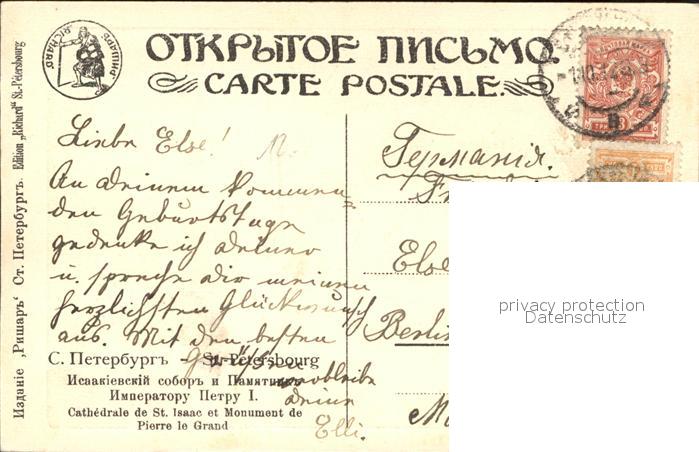 RICHARD РИШАРЪ
ОТКРЫТОЕ ПИСЬМО.
CARTE POSTALE.
Изданіе „Ришаръ“ Ст. Петербургъ. Edition „Richard“ St.-Pétersbourg
Liebe Else!
An deinem kommen=
den Geburtstage
gedenke ich deiner
u. spreche dir meinen
herzlichsten Glückwunsch
aus. Mit den besten
Grüßen
verbleibe
deine
Elli.
С. Петербургъ – St.-Pétersbourg
Исаакіевскій соборъ и Памятникъ
Императору Петру I.
Cathédrale de St. Isaac et Monument de
Pierre le Grand
Германія.
Else
Berlin
privacy protection
Datenschutz